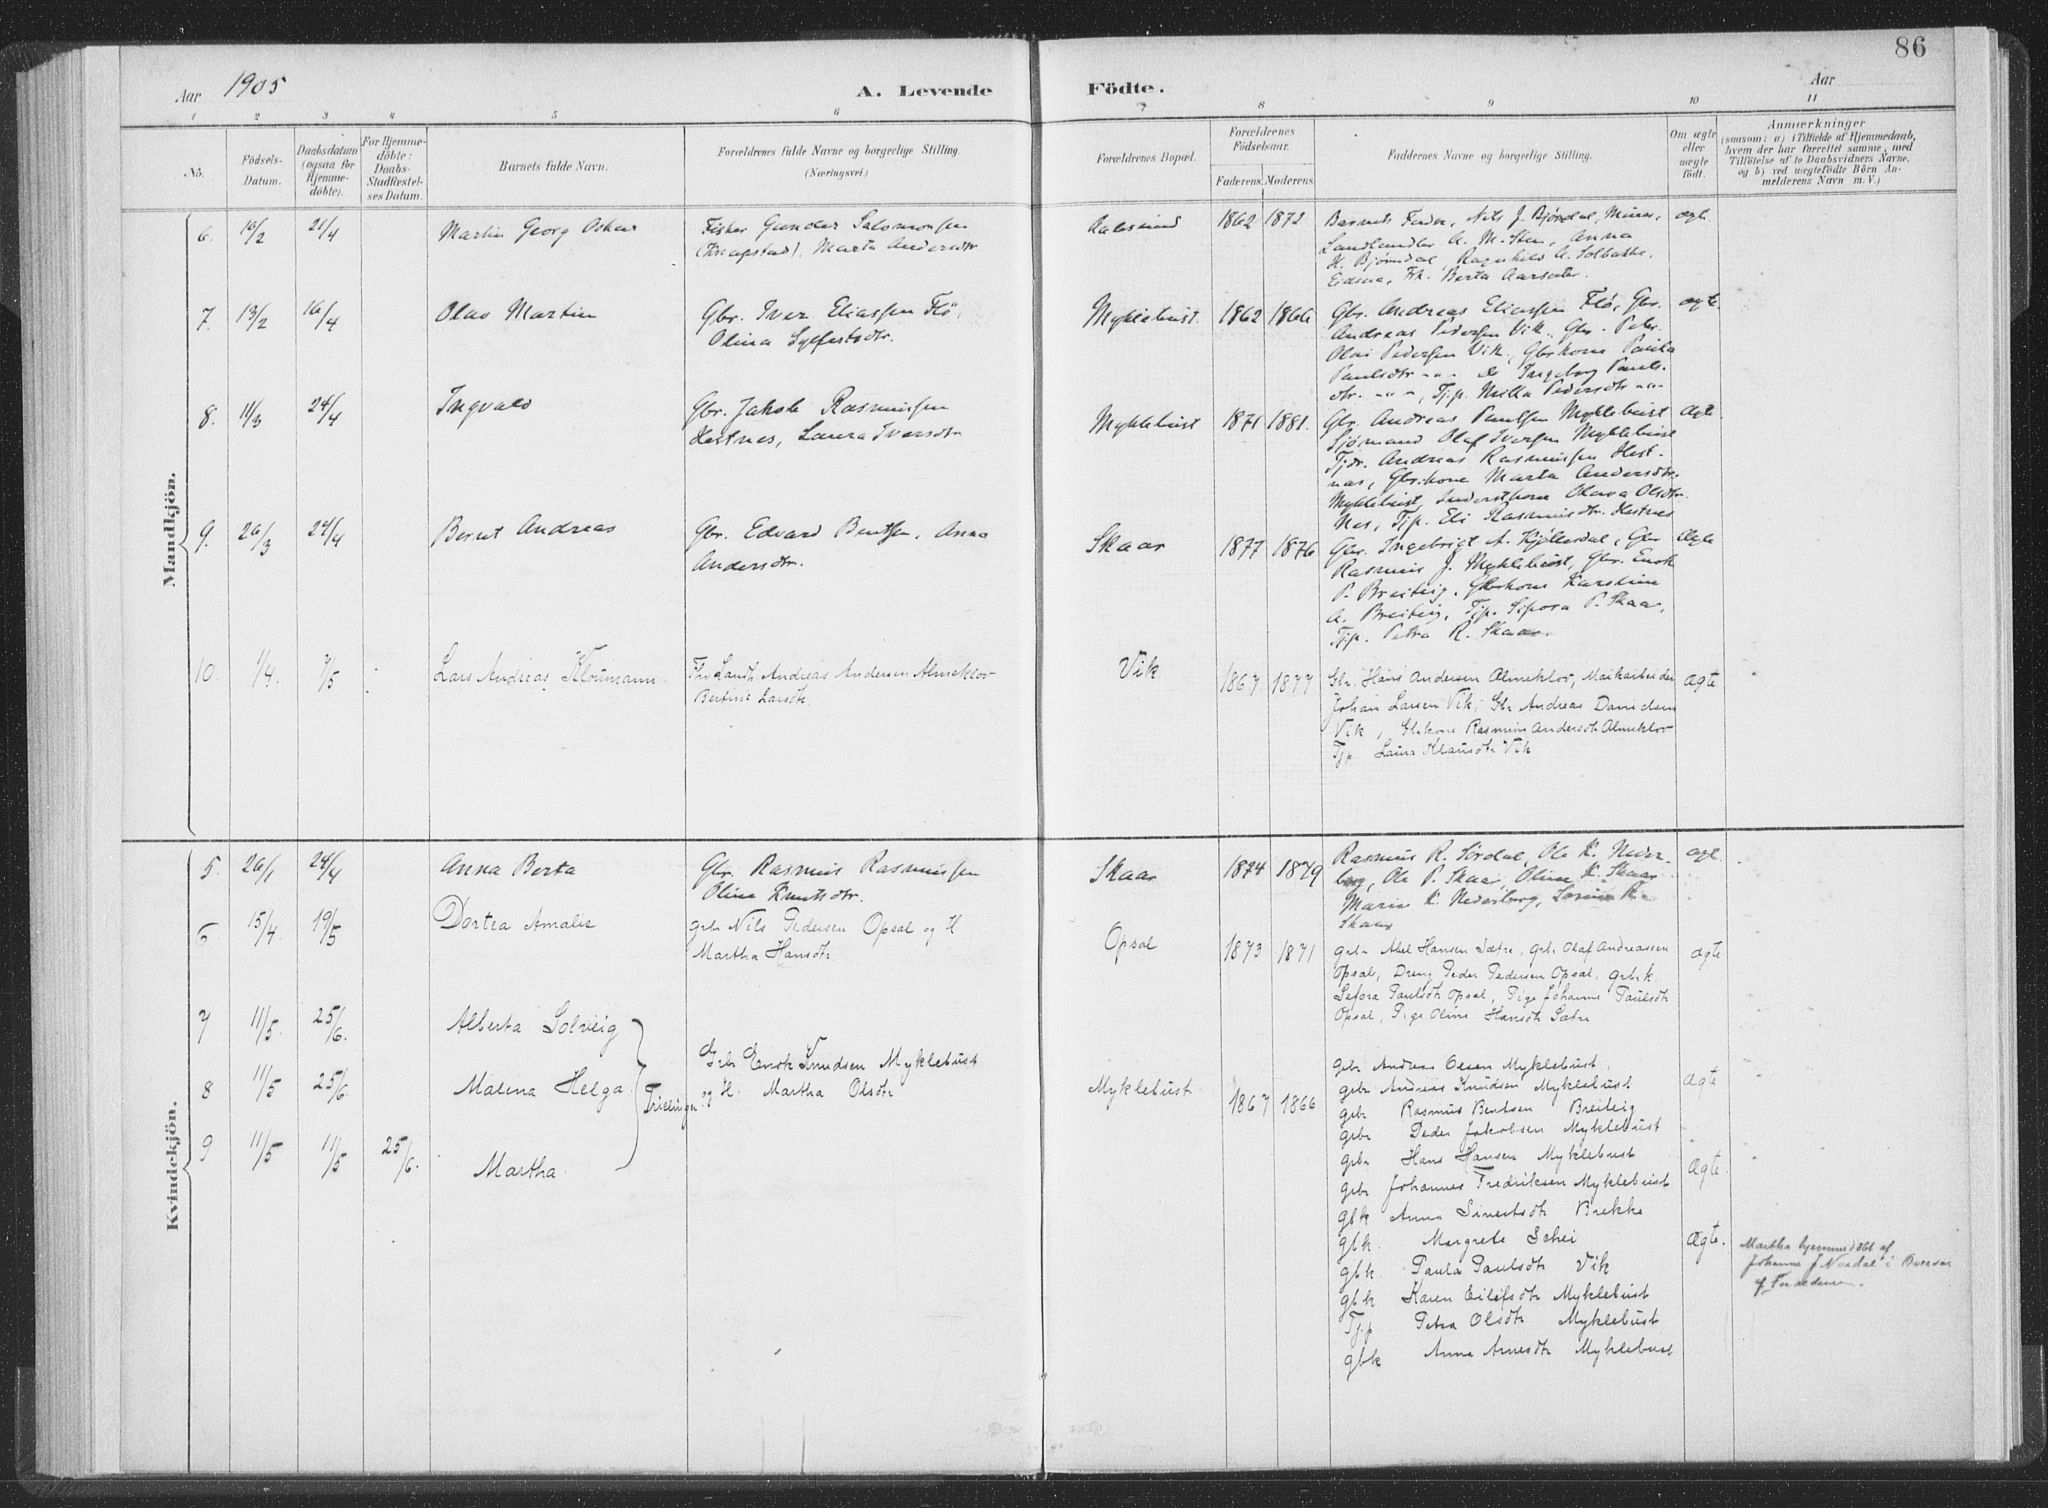 86
Aar 1905
A. Levende Födte.
Aar
1 2 3 4 5 6 7 8 9 10 11
No.
Födsels-Datum.
Daabsdatum (ogsaa for Hjemmedöbte).
For Hjemmedöbte: Daabs-Stadfestelses Datum.
Barnets fulde Navn.
Forældrenes fulde Navne og borgerlige Stilling.
(Næringsvei.)
Forældrenes Bopæl.
Forældrenes Födselsaar.
Faderens. Moderens.
Faddernes Navne og borgerlige Stilling.
Om ægte eller uægte födt.
Anmærkninger
(saasom: a) i Tilfælde af Hjemmedaab,
hvem der har forrettet samme, med
Tilföielse af to Daabsvidners Navne,
og b) ved uægtefödte Börn Anmelderens Navn m. V.)
Mandkjön.
6. 16/2 21/4 Martin Georg Oskar
Fisker Gunder Salomonsen
(Knapstad). Marta Andersdtr
1862 1872
Barnets Fader, Nils J. Bjørdal,
Landhandler A. M. Sten, Anna
Frk. Berta Aarseter.
ægte
7. 13/2 16/4 Olav Martin
Gbr. Iver Eliassen Flø,
Olina Sylfestsdtr.
Myklebust 1862 1866
Gbr. Andreas Eliassen Flø, Gbr.
Andreas Pedersen Vik, Gbr. Peter
Olai Pedersen Vik, Gbrkone Paula
Paulsdtr -"- do Ingeborg Pauls-
dtr. -"-, Tjp. Milla Pedersdtr -"-
ægte
8. 11/3 24/4 Ingvald
Gbr. Jakob Rasmussen
Hestnes, Laura Iversdtr
Myklebust 1871 1881.
Gbr. Andreas Paulsen Myklebust
Sjømand Olaf Iversen Myklebust
Tjdr. Andreas Rasmussen Hest-
nes, Gbr.kone Marta Andersdtr.
Myklebust, Olava Olsdtr.
Nes, Tjp. Eli Rasmusdtr. Hestnes
ægte
9. 26/3 24/4 Bernt Andreas
Gbr. Edvard Bentsen, Anna
Andersdtr.
Skaar 1877 1876
Gbr. Ingebrigt A. Gbr
Rasmus J. Myklebust, Gbr. Enok
P. Breiteig, Gbrkone Karoline
A. Breiteig, Tjp. Sefora P. Skaar,
Tjp. Petra R. Skaar.
ægte
10. 1/4. 7/5 Lars Andreas Kloumann.
Landh. Andreas Andersen Almeklov
Bertine Larsdtr.
Vik 1867. 1877
Gbr. Hans Andersen Almeklov, Markarbeider
Johan Larsen Vik, Gbr Andreas Danielsen
Vik, Gbrkone Rasmine Andersdtr Almeklov
Tjp. Laura Klausdtr Vik
ægte
Kvindekjön.
5. 26/1 24/4 Anna Berta
Gbr. Rasmus Rasmussen
Olina Knutsdtr.
Skaar 1874 1879
Rasmus R. Sørdal, Ole K. Neder-
berg, Ole P. Skaar, Oline K. Skaar
Marie K. Nederberg, R.
Skaar
ægte
6 15/4. 19/5 Dortea Amalie
gbr Nils Pedersen Opsal og H
Martha Hansdtr
Opsal 1873 1871
gbr Abel Hansen Sætre, gbr Olaf Andreassen
Opsal, Dreng Peder Pedersen Opsal, gbrk.
Sefora Paulsdtr Opsal, Pige Johanne Paulsdtr
Opsal, Pige Oline Hansdtr Sætre
ægte
7 11/5. 25/6. Alberta Solveig
8 11/5 25/6. Malena Helga
9 11/5 11/5 25/6. Martha.
Trillinger
Gbr Enok Knudsen Myklebust
og H. Martha Olsdtr
Myklebust 1867 1866
gbr Andreas Olsen Myklebust.
gbr Andreas Knudsen Myklebust
gbr Rasmus Bentsen Breiteig
gbr Peder Jakobsen Myklebust
gbr Hans Hansen Myklebust
gbr Johannes Fredriksen Myklebust
gbk Anna Sivertsdtr Brekke
gbk. Margrete Schei
gbk Paula Paulsdtr Vik
gbk Karen Eilefsdtr Myklebust
Tjp Petra Olsdtr Myklebust
gbk Anna Arnesdtr Myklebust
Ægte
Ægte
Ægte.
Martha hjemmedöbt af
Johanne J Nordal i
af Forældrene.